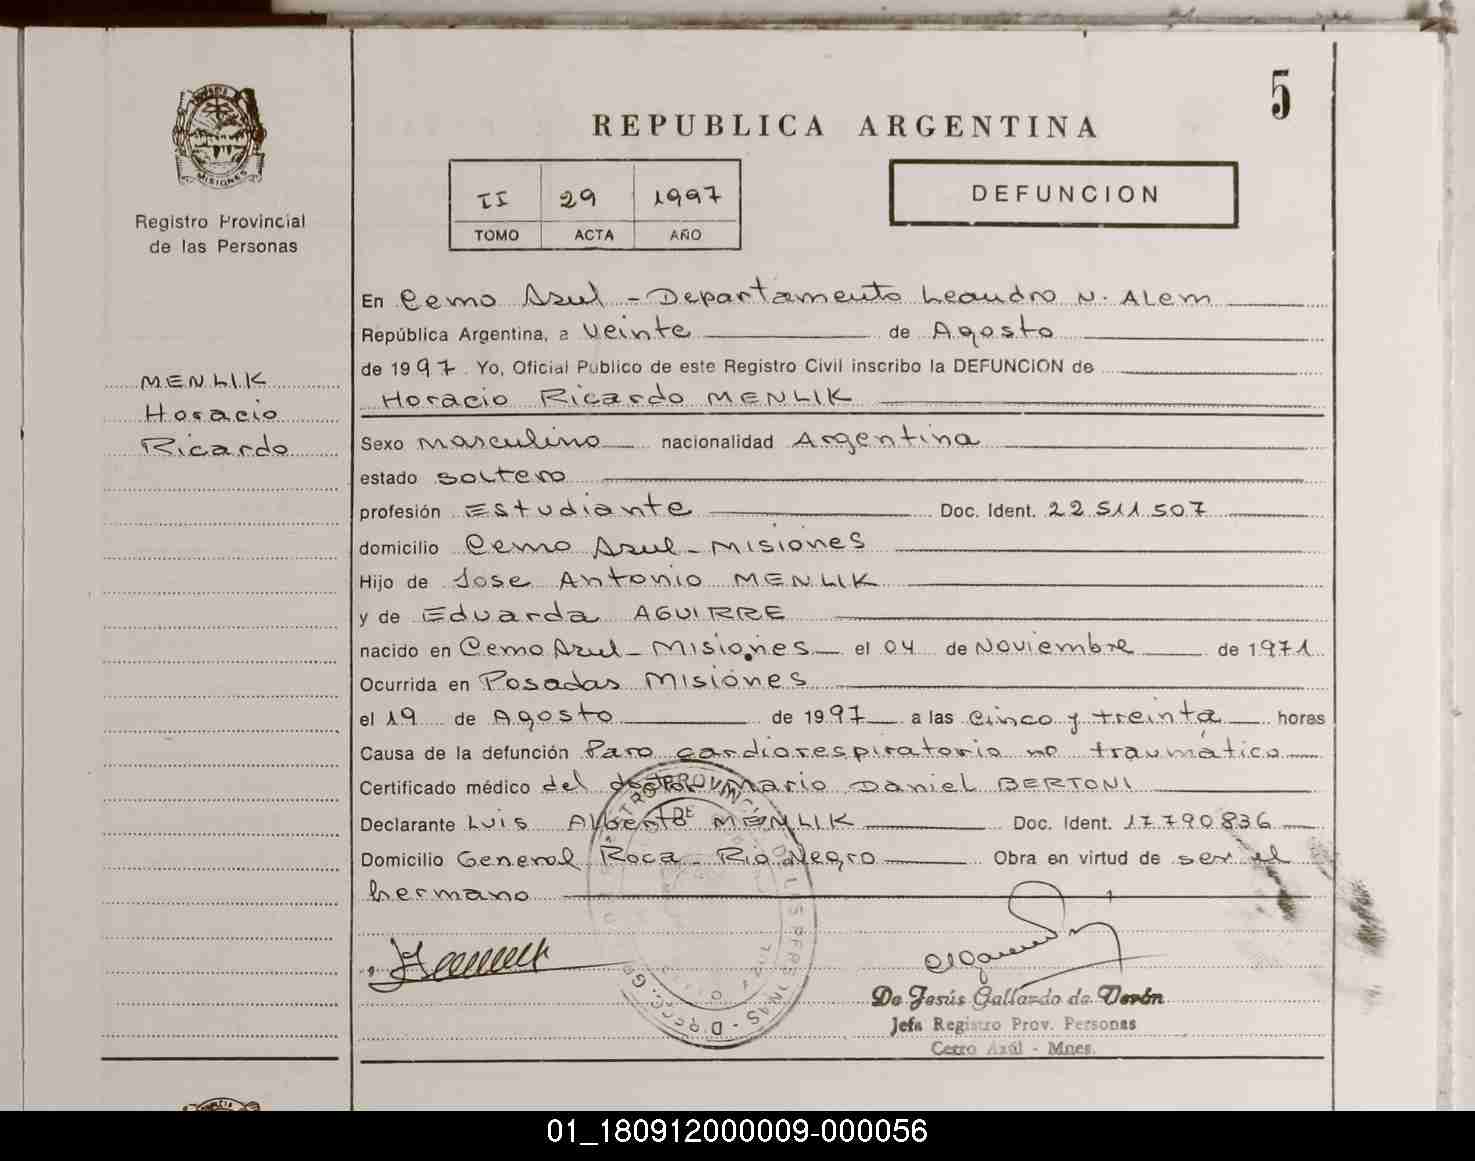 5
REPUBLICA ARGENTINA
MISIONES
Registro Provincial
de las Personas
II 29 1997
TOMO ACTA AÑO
DEFUNCION
MENLIK
Horacio
Ricardo
En Cerro Azul - Departamento Leandro N. Alem
República Argentina, a Veinte de Agosto
de 1997. Yo, Oficial Público de este Registro Civil inscribo la DEFUNCION de
Horacio Ricardo MENLIK
Sexo masculino nacionalidad Argentina
estado soltero
profesión Estudiante Doc. Ident. 22 511 507
domicilio Cerro Azul - Misiones
Hijo de Jose Antonio MENLIK
y de Eduarda AGUIRRE
nacido en Cerro Azul - Misiones el 04 de Noviembre de 1971
Ocurrida en Posadas Misiones
el 19 de Agosto de 1997 a las cinco y treinta horas
Causa de la defunción Paro cardiorespiratorio no traumático
Certificado médico del doctor Mario Daniel BERTONI
Declarante Luis Alberto MENLIK Doc. Ident. 17790836
Domicilio General Roca - Rio Negro Obra en virtud de ser el
hermano
De Jesús Gallardo de Verón
Jefa Registro Prov. Personas
Cerro Azúl - Mnes.
01_180912000009-000056